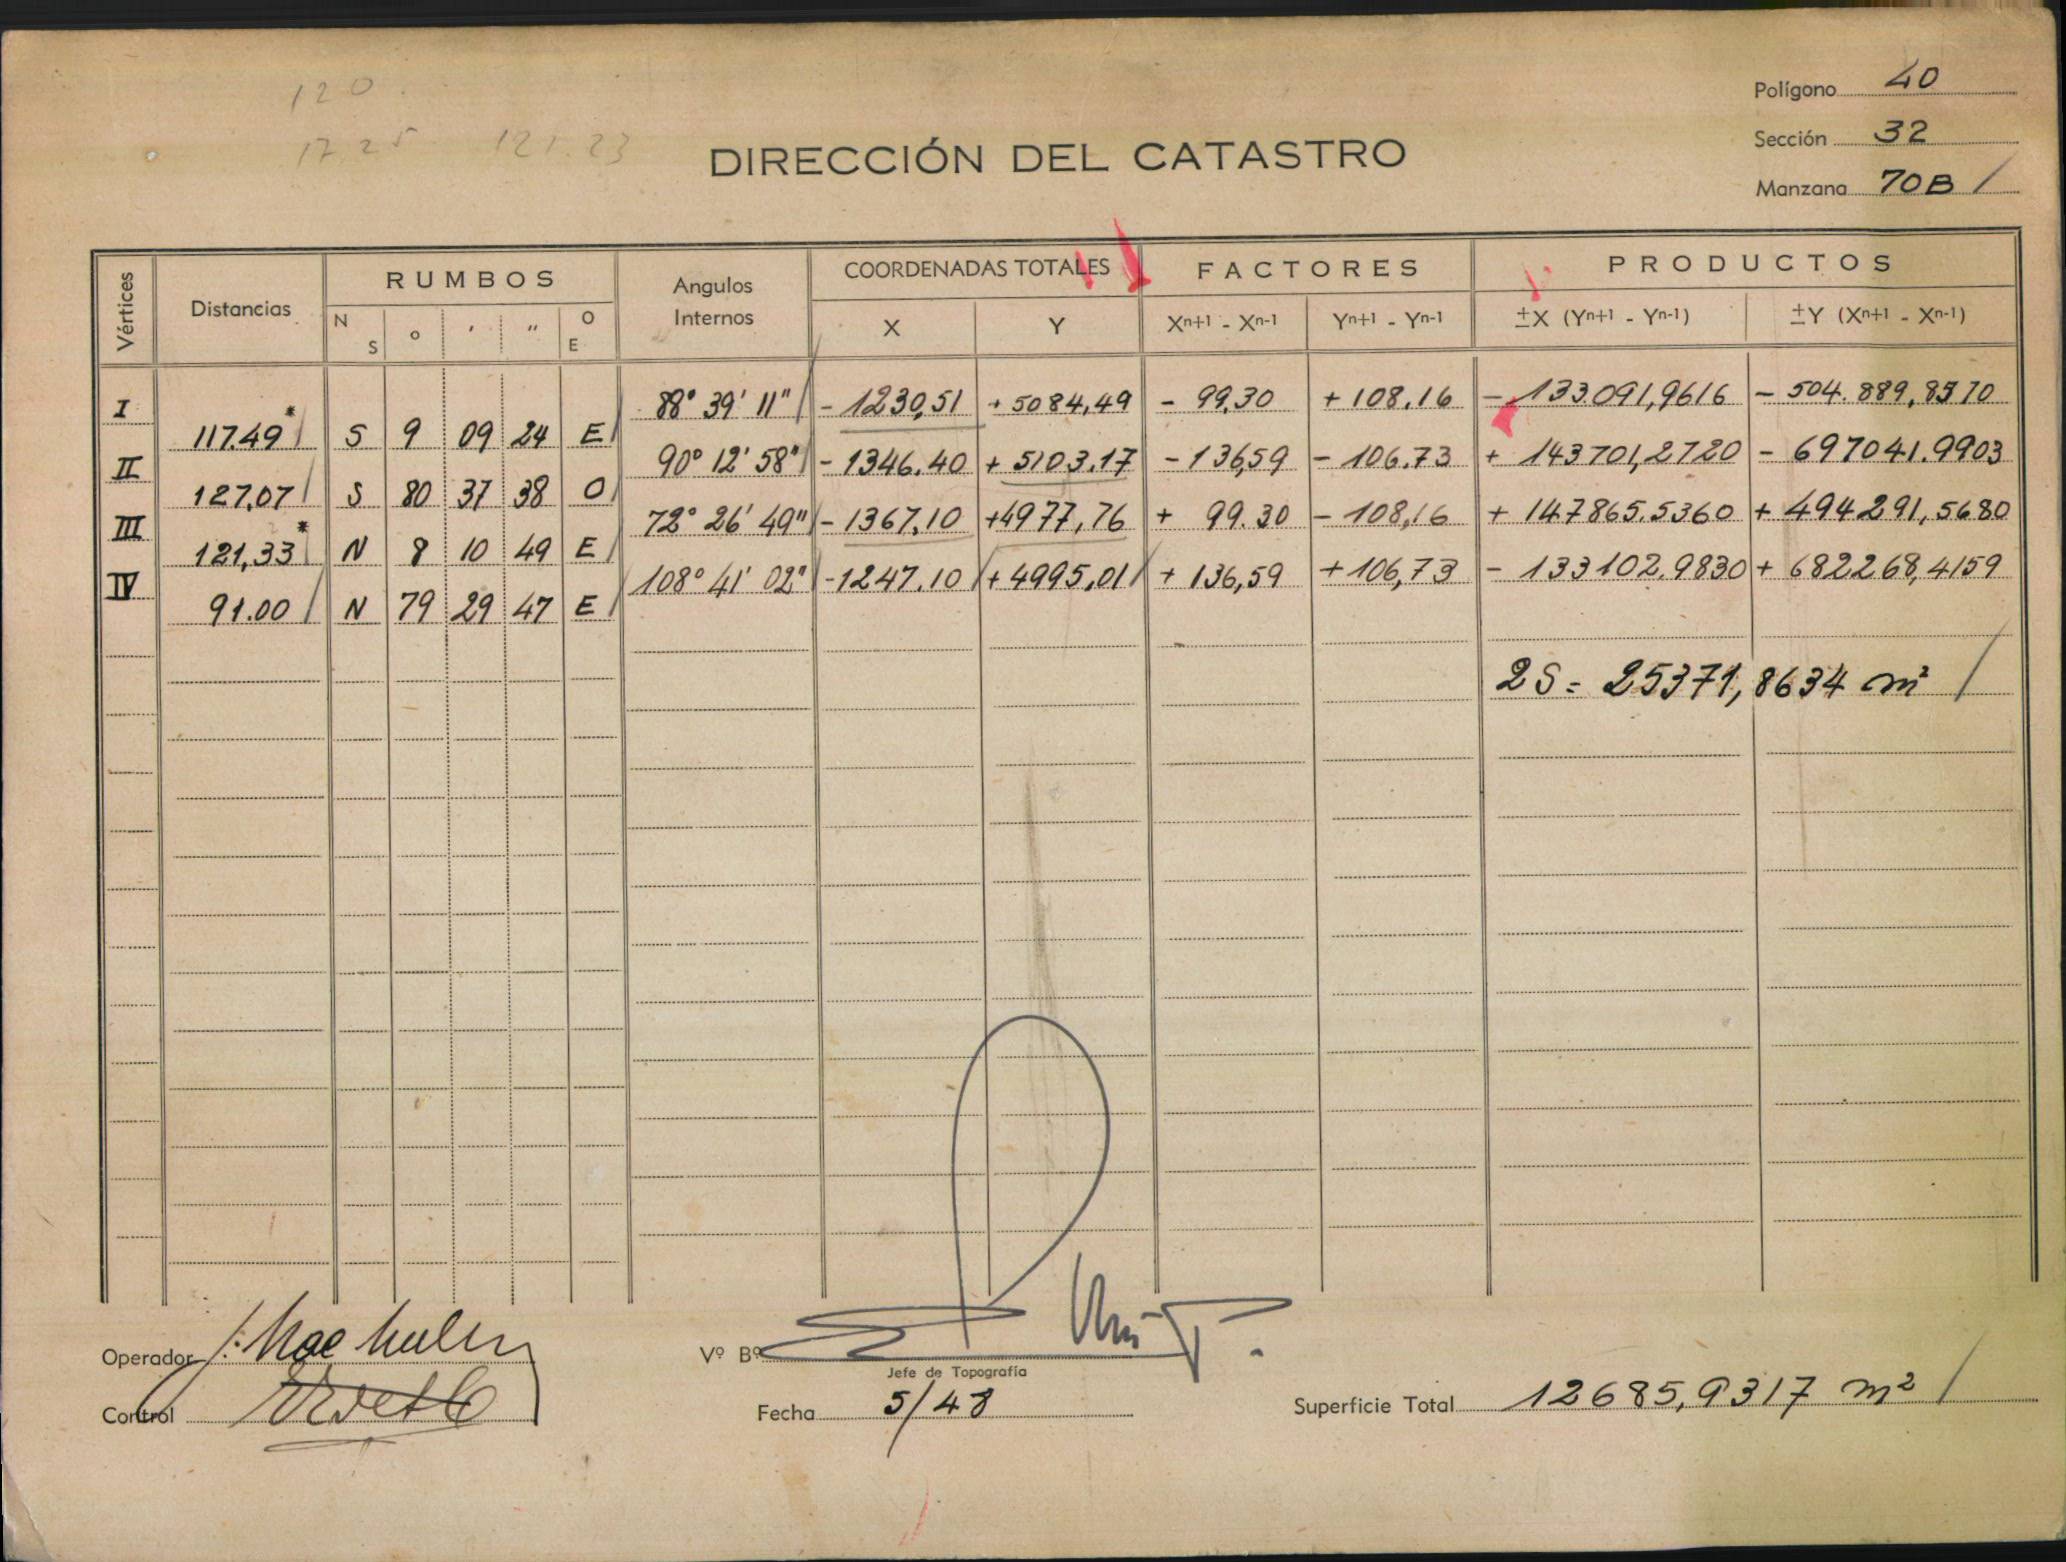 120.
17.25 121.23
Polígono 40
Sección 32
Manzana 70B /
DIRECCIÓN DEL CATASTRO
Vértices Distancias RUMBOS Angulos Internos COORDENADAS TOTALES FACTORES PRODUCTOS
N S ° ' " O E X Y Xn+1 - Xn-1 Yn+1 - Yn-1 ±X (Yn+1 - Yn-1) ±Y (Xn+1 - Xn-1)
I 88° 39' 11" - 1230,51 + 5084,49 - 99.30 + 108.16 - 133.091,9616 - 504.889,8570
117.49* S 9 09 24 E
II 90° 12' 58" - 1346.40 + 5103.17 - 136,59 - 106.73 + 143701,2720 - 697041.9903
127,07 S 80 37 38 O
III 72° 26' 49" - 1367,10 + 4977,76 + 99.30 - 108,16 + 147865.5360 + 494291,5680
121,33* N 8 10 49 E
IV 108° 41' 02" - 1247.10 + 4995,01 + 136,59 + 106,73 - 133102.9830 + 682268,4159
91.00 N 79 29 47 E
2S = 25371,8634 m² /
Operador
Vº Bº
Jefe de Topografía
Control
Fecha 5/48
Superficie Total 12685,9317 m² /